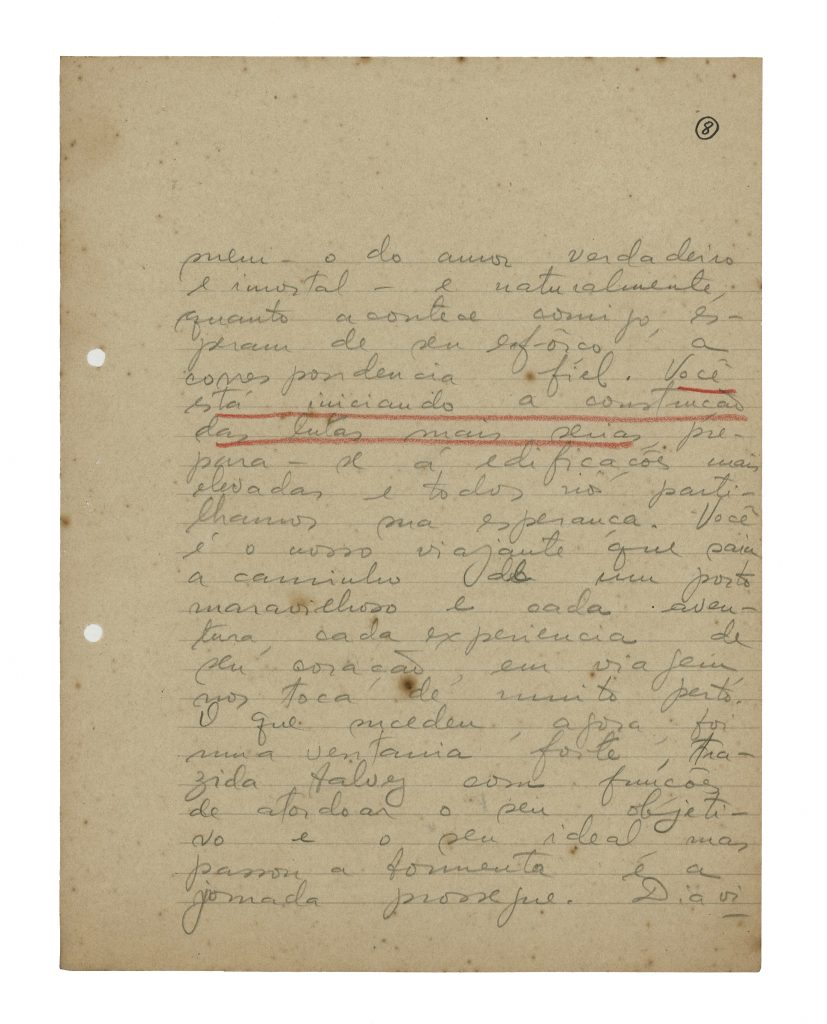 8
mem - o do amor verdadeiro
e imortal - e naturalmente,
quanto acontece comigo, es-
peram de seu esfôrço, a
correspondencia fiel. Você
está iniciando a construção
das lutas mais serias, pre-
para - se á edificações mais
elevadas e todos nós, parti-
lhamos sua esperança. Você
é o nosso viajante que saiu
a caminho de um porto
maravilhoso e cada aven-
tura, cada experiencia de
seu coração, em viagem
nos toca de muito perto.
O que sucedeu, agora foi
uma ventania forte, tra-
zida talvez com funções
de atordoar o seu objeti-
vo e o seu ideal mas
passou a tormenta e a
jornada prossegue. Diavi